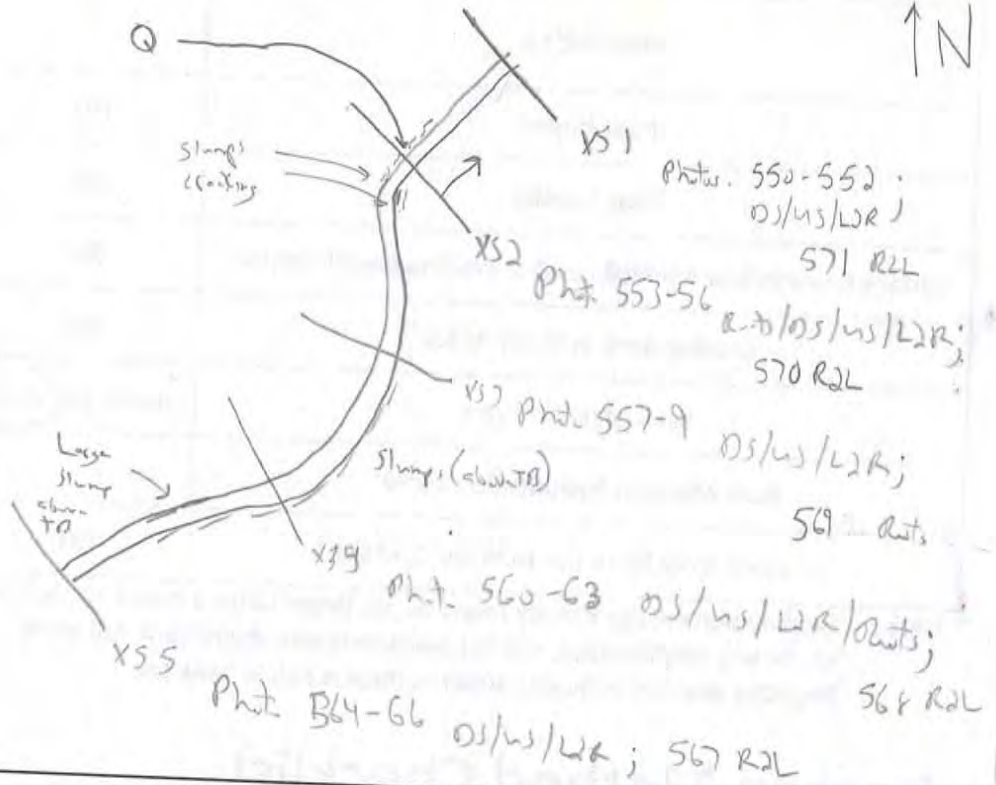 Q
N
XS1
Slumps
cracking
Photos. 550-552
DS/US/L2R
571 R2L
XS2
Phot. 553-56
Roots/DS/US/L2R;
570 R2L
XS3
Phot. 557-9
DS/US/L2R;
569 Roots
Large
Slump
above
TB
Slumps (above TB)
Phot. 560-63 DS/US/L2R/Roots;
568 R2L
XS5
Phot 564-66
DS/US/L2R; 567 R2L